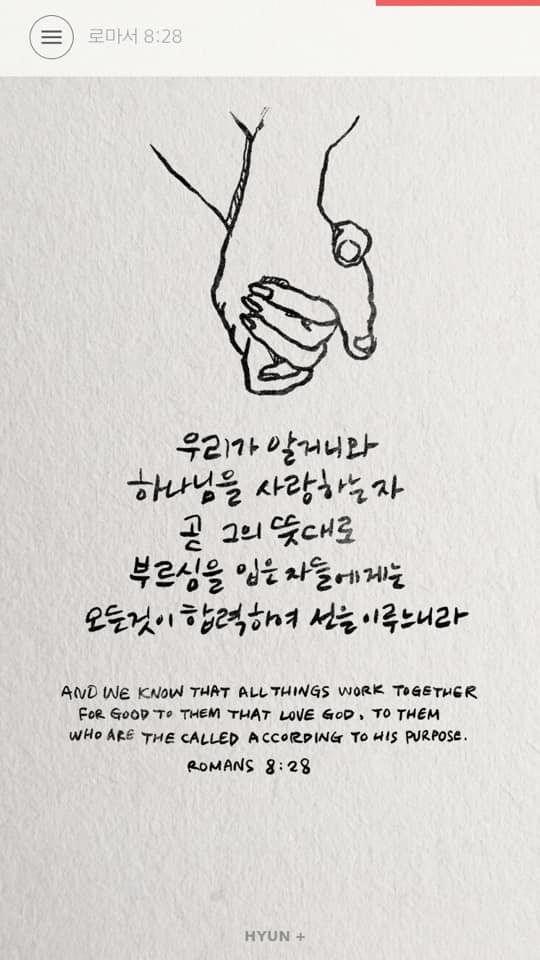 로마서 8:28
우리가 알거니와
하나님을 사랑하는 자
곧 그의 뜻대로
부르심을 입은 자들에게는
모든것이 합력하여 선을 이루느니라
AND WE KNOW THAT ALL THINGS WORK TOGETHER
FOR GOOD TO THEM THAT LOVE GOD, TO THEM
WHO ARE THE CALLED ACCORDING TO HIS PURPOSE.
ROMANS 8:28
HYUN +